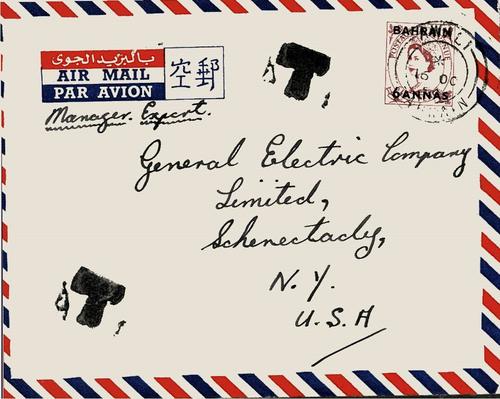 بالبريد الجوي
AIR MAIL
PAR AVION
空郵
Manager. Export.
BAHRAIN
6 ANNAS
General Electric Company
Limited,
Schenectady,
N. Y.
U. S. A